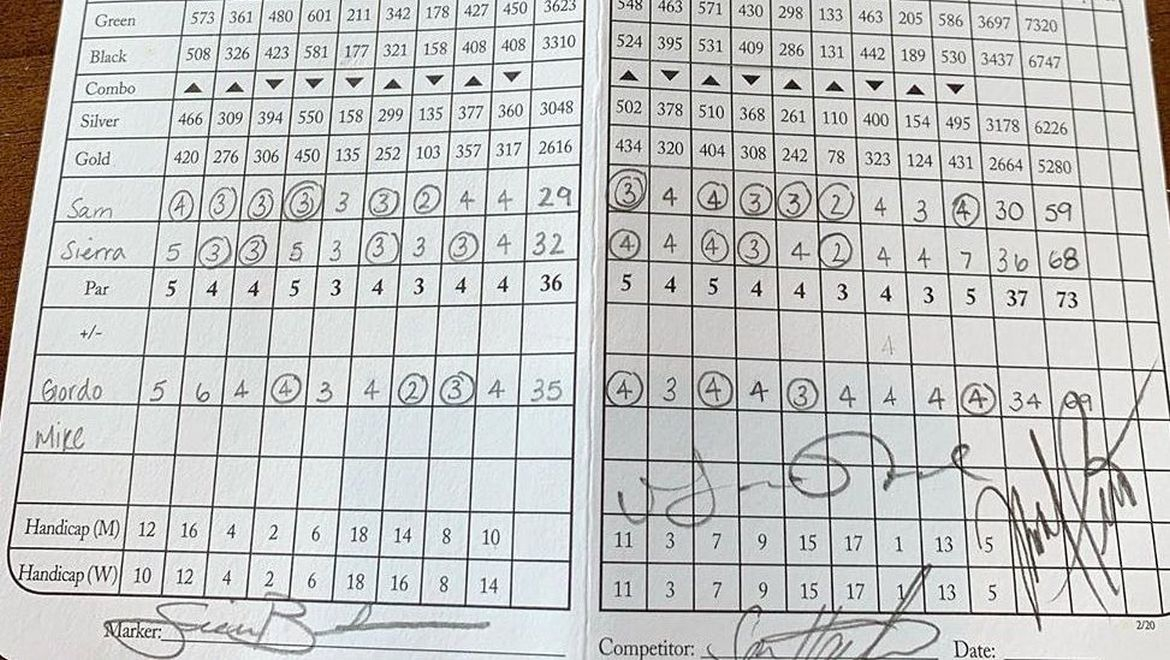 Green 573 361 480 601 211 342 178 427 450 3623 548 463 571 430 298 133 463 205 586 3697 7320
Black 508 326 423 581 177 321 158 408 408 3310 524 395 531 409 286 131 442 189 530 3437 6747
Combo ▲ ▲ ▼ ▼ ▼ ▲ ▼ ▲ ▼ ▲ ▼ ▲ ▼ ▲ ▲ ▼ ▲ ▼
Silver 466 309 394 550 158 299 135 377 360 3048 502 378 510 368 261 110 400 154 495 3178 6226
Gold 420 276 306 450 135 252 103 357 317 2616 434 320 404 308 242 78 323 124 431 2664 5280
Sam 4 3 3 3 3 3 2 4 4 29 3 4 4 3 3 2 4 3 4 30 59
Sierra 5 3 3 5 3 3 3 3 4 32 4 4 4 3 4 2 4 4 7 36 68
Par 5 4 4 5 3 4 3 4 4 36 5 4 5 4 4 3 4 3 5 37 73
+/- 4
Gordo 5 6 4 4 3 4 2 3 4 35 4 3 4 4 3 4 4 4 4 34 69
Mike
Handicap (M) 12 16 4 2 6 18 14 8 10 11 3 7 9 15 17 1 13 5
Handicap (W) 10 12 4 2 6 18 16 8 14 11 3 7 9 15 17 1 13 5
2/20
Marker: Competitor: Date: